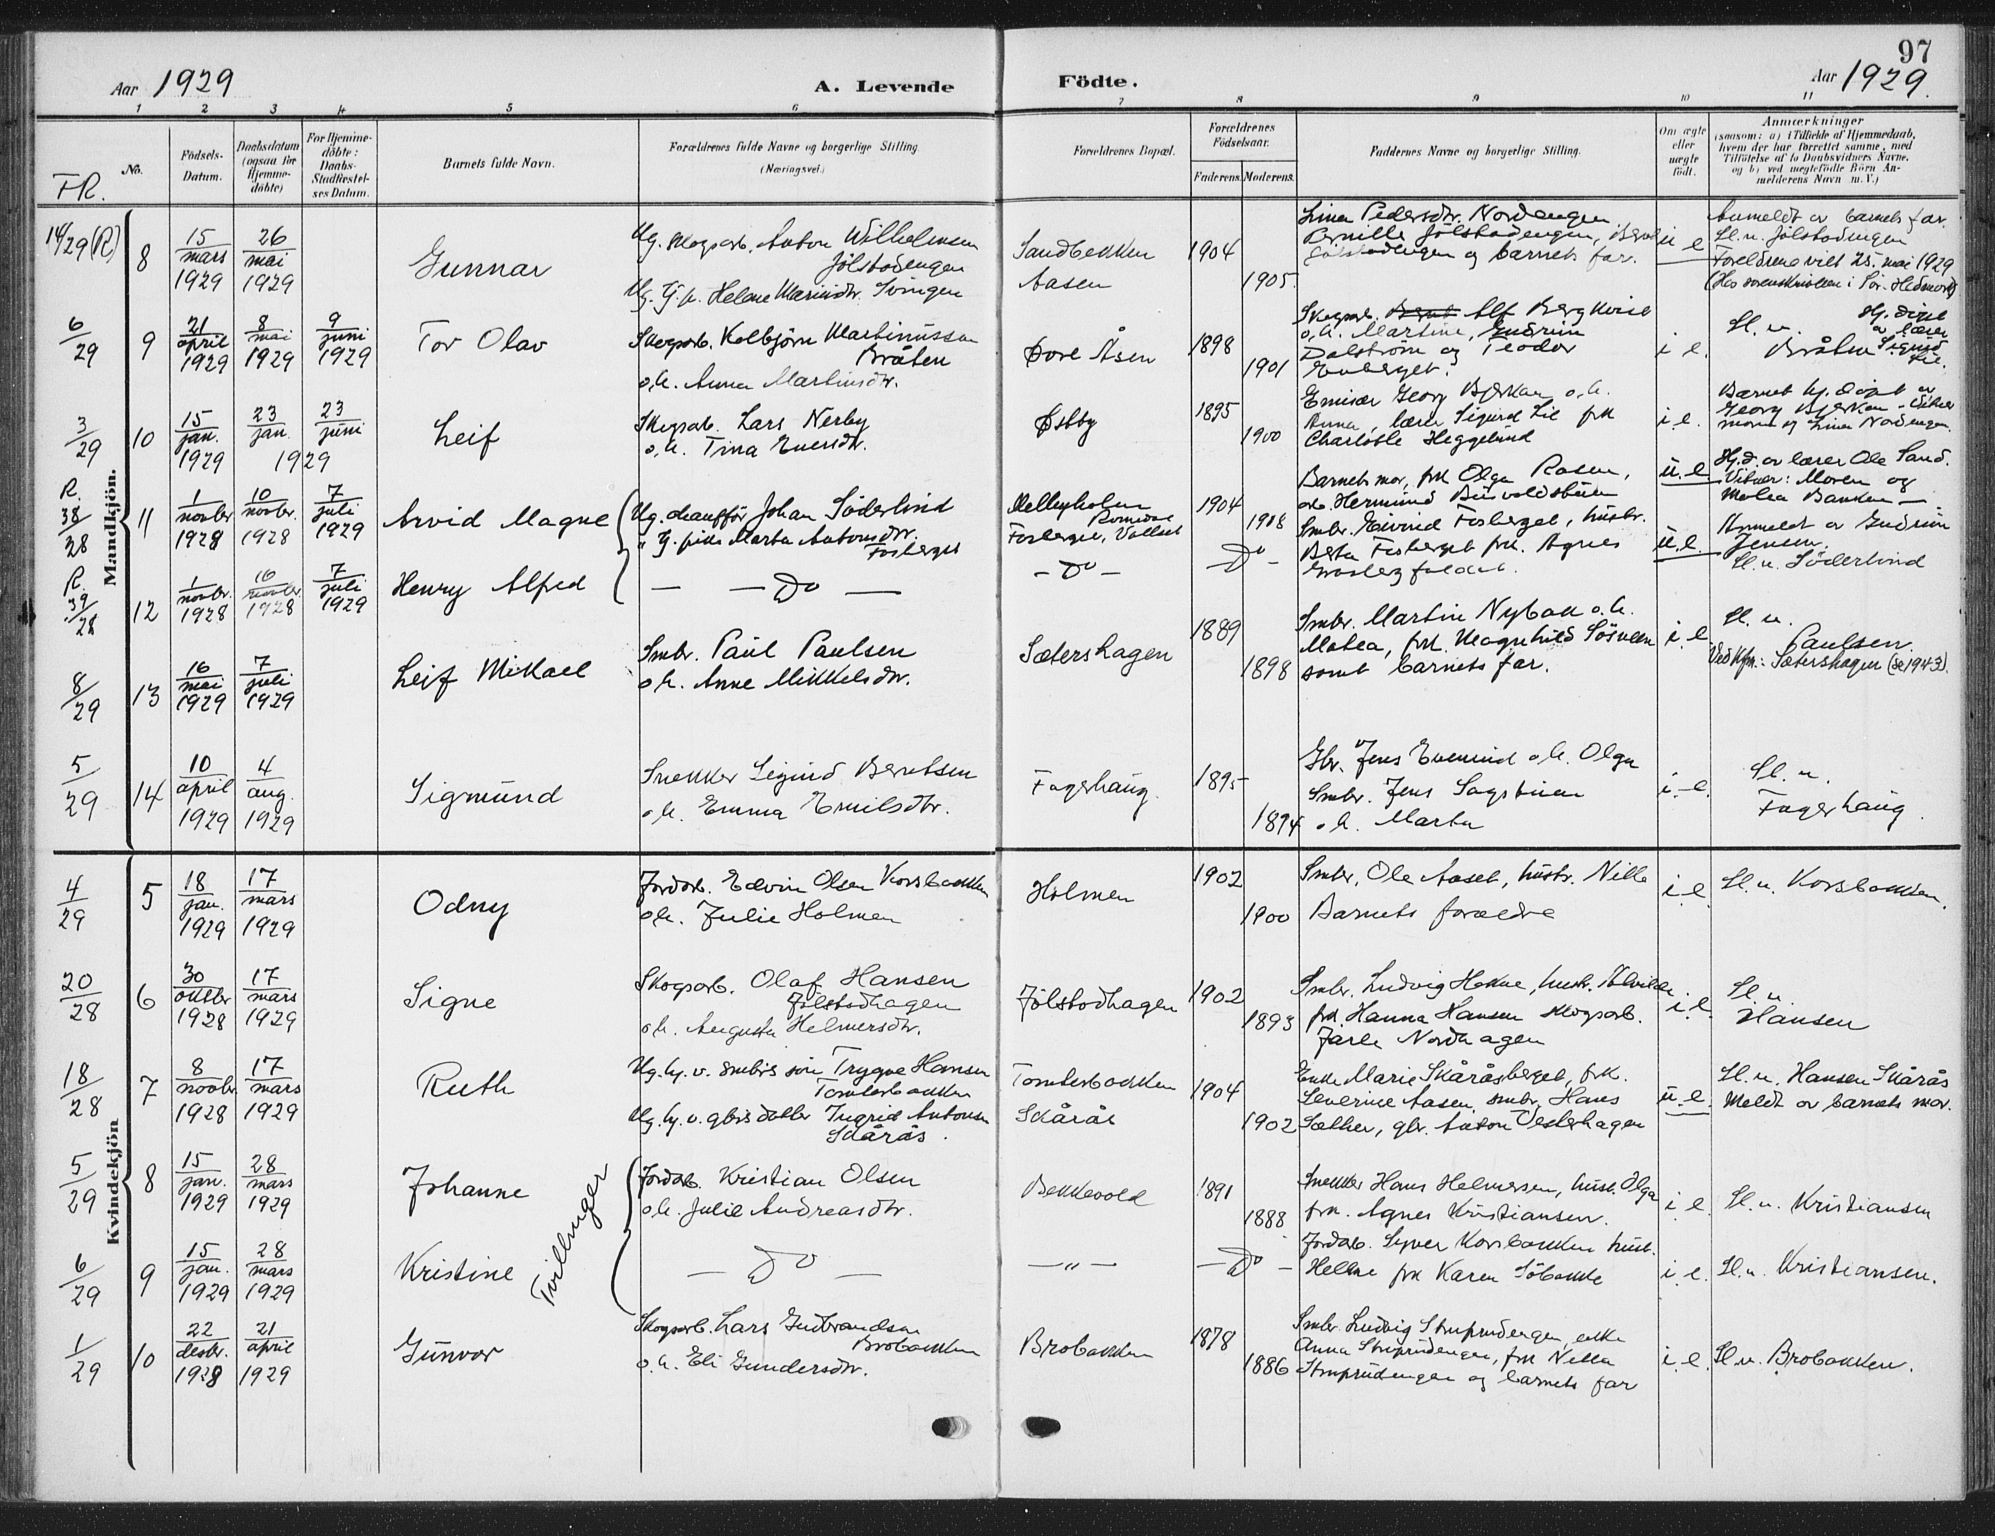 97
Aar 1929
A. Levende
Födte.
Aar 1929.
1 2 3 4 5 6 7 8 9 10 11
FR.
No.
Födsels-
Datum.
Daabsdatum
(ogsaa for
Hjemme-
döbte)
For Hjemme-
döbte:
Daabs-
Stadfæstel-
ses Datum.
Barnets fulde Navn.
Forældrenes fulde Navne og borgerlige Stilling
(Næringsvei.)
Forældrenes Bopæl.
Forældrenes
Födselsaar.
Faderens. Moderens.
Faddernes Navne og borgerlige Stilling.
Om ægte
eller
uægte
födt.
Anmærkninger
(saasom: a) i Tilfælde af Hjemmedaab,
hvem der har forrettet samme, med
Tilföielse af to Daabsvidners Navne,
og b) ved uegtefödte Börn An-
melderens Navn m. V.)
Mandkjön.
14/29 (R) 8 15 mars 1929 26 mai 1929 Gunnar
Ug. skogsarb. Anton Wilhelmsen
Jölstadengen
Ug. tj.p. Helene Marinsdtr. Svingen
Sandbekken
Aasen
1904 1905.
Lina Pedersdtr. Nordengen
Pernille Jölstadengen,
Jölstadengen og barnets far.
u e
Anmeldt av barnets far.
Sl.n. Jölstadengen
Foreldrene viet 25. mai 1929
(Hos sorenskriveren i Sör-Hedmark)
6/29 9 21 april 1929 8 mai 1929 9 juni 1929 Tor Olav
Skogsarb. Kolbjörn Martinussen
Bråten
o.h. Anna Martinsdtr.
Övre Åsen
1898 1901
Skogsarb. Alf Bergkvist
o.h. Martine, Gudrun
Dalström og Teodor
i e.
Sl. n.
Bråten
Hj. döpt
av lærer
Sigurd
Lie.
3/29 10 15 jan. 1929 23 jan. 23 juni 1929 Leif
Skogsarb. Lars Nerby
o.h. Tina Eversdtr.
Östby
1895 1900
Emisær Georg Bjerkan o.h.
Anna, lærer Sigurd Lie frk
Charlotte Heggelund
i.e.
Barnet hj. döpt av
Georg Bjerkan. Vitner
moren og Lina Nordengen.
R. 38/28 11 1 novbr 1928 10 novbr. 1928 7 juli 1929 Arvid Magne
Ug. chaufför Johan Söderlind
" tj. pike Marta Antonsdtr.
Fosberget
Romedal
Fosberget, Vallset
1904 1908
Barnets mor, frk Olga Rosen,
Smbr. Eivind Fosberget, hustr.
u. e
Hj.d. av lærer Ole Sand.
Vitner: Moren og
Malea Bakken —
R. 39/28 12 1 novbr. 1928 10 novbr 1928 7 juli 1929 Henry Alfred
— — Do —
— Do — — Do —
Berta Fosberget frk. Agnes
u.e.
Anmeldt av Gudrun
Jensen.
Sl. n. Söderlind
8/29 13 16 mai 1929 7 juli 1929 Leif Mikael
Smbr. Paul Paulsen
o.h. Anne Mikkelsdtr.
Sætershagen
1889 1898
Smbr. Martin Nybakk o.h.
Malea, frk. Magnhild Sörveen
samt barnets far.
i e.
Sl. n.
Paulsen.
Ved kfm.: Sætershagen (se 1943).
5/29 14 10 april 1929 4 aug. 1929 Sigmund
Snekker Sigurd Berntsen
o.h. Emma Emilsdtr.
Fagerhaug.
1895 1894
Gbr. Jens Evenrud o.h. Olga
Smbr. Jens Sagstuen
o.h. Marta
i.-e.
Sl. n.
Fagerhaug.
Kvindekjön
4/29 5 18 jan. 1929 17 mars 1929 Odny
Jordarb. Edvin Olsen Korsbakken
o.h. Julie Holmen
Holmen
1902 1900
Smbr. Ole Aaset, hustr. Nille
Barnets foreldre
i.e.
Sl. n. Korsbakken.
20/28 6 30 oktbr 1928 17 mars 1929 Signe
Skogsarb. Olaf Hansen
Jölstadhagen
o.h. Augusta Helmersdtr.
Jölstadhagen
1902 1893
Smbr. Ludvig Hokne, hustr. Alvilde
frk. Hanna Hansen skogsarb.
Jarle Nordhagen
i.e.
Sl. n.
Hansen
18/28 7 8 novbr 1928 17 mars 1929 Ruth
Ug. hj.v. smbrs sön Trygve Hansen
Tomterbakken
Ug. hj. v. gbrs datter Ingrid Antonsen
Skårås.
Tomterbakken
Skårås
1904 1902
Enke Marie Skåråsberget, frk.
Severine Aasen, smbr. Hans
Sæther, gbr. Anton Vesterhagen
u.e.
Sl. n. Hansen Skårås
Meldt av barnets mor.
5/29 8 15 jan. 1929 28 mars 1929 Johanne
Tvillinger
Jordarb. Kristian Olsen
o.h. Julie Andreasdtr.
Bekkevold
1891 1888
Snekker Hans Helmersen, hust. Olga
frk. Agnes Kristiansen.
i e.
Sl. n. Kristiansen
6/29 9 15 jan. 1929 28 mars 1929 Kristine
— Do —
— " — — Do —
Jordarb. Syver Korsbakken hust.
Helene frk Karen Söbakke
i e.
Sl. n. Kristiansen.
1/29 10 22 desbr. 1928 21 april 1929 Gunvor
Skogsarb. Lars Gudbrandsen
Brobakken
o.h. Eli Gundersdtr.
Brobakken
1878 1886
Smbr. Ludvig Stuprudengen, enke
Anna Stuprudengen, frk Nella
Stuprudengen og barnets far
i.e.
Sl. n. Brobakken.